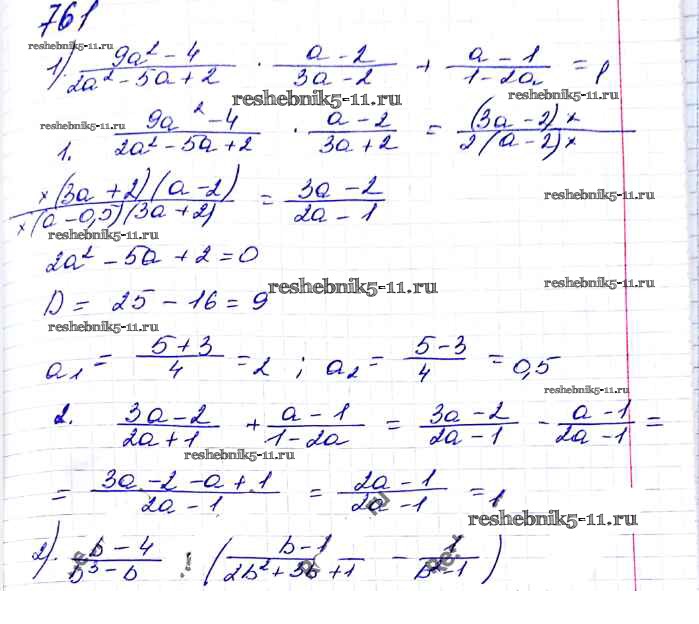 761
reshebnik5-11.ru
1). (9a² - 4)/(2a² - 5a + 2) · (a - 2)/(3a - 2) + (a - 1)/(1 - 2a) = 1
reshebnik5-11.ru reshebnik5-11.ru
reshebnik5-11.ru
1. (9a² - 4)/(2a² - 5a + 2) · (a - 2)/(3a + 2) = (3a - 2)×/2(a - 2)×
×(3a + 2)(a - 2)/×(a - 0,5)(3a + 2) = (3a - 2)/(2a - 1)
reshebnik5-11.ru
reshebnik5-11.ru
2a² - 5a + 2 = 0
reshebnik5-11.ru reshebnik5-11.ru
D = 25 - 16 = 9
reshebnik5-11.ru
a₁ = (5 + 3)/4 = 2 ; a₂ = (5 - 3)/4 = 0,5
reshebnik5-11.ru
2. (3a - 2)/(2a + 1) + (a - 1)/(1 - 2a) = (3a - 2)/(2a - 1) - (a - 1)/(2a - 1) =
reshebnik5-11.ru
= (3a - 2 - a + 1)/(2a - 1) = (2a - 1)/(2a - 1) = 1
reshebnik5-11.ru
2). (b - 4)/(b³ - b) : ((b - 1)/(2b² + 3b + 1) - 1/(b² - 1))